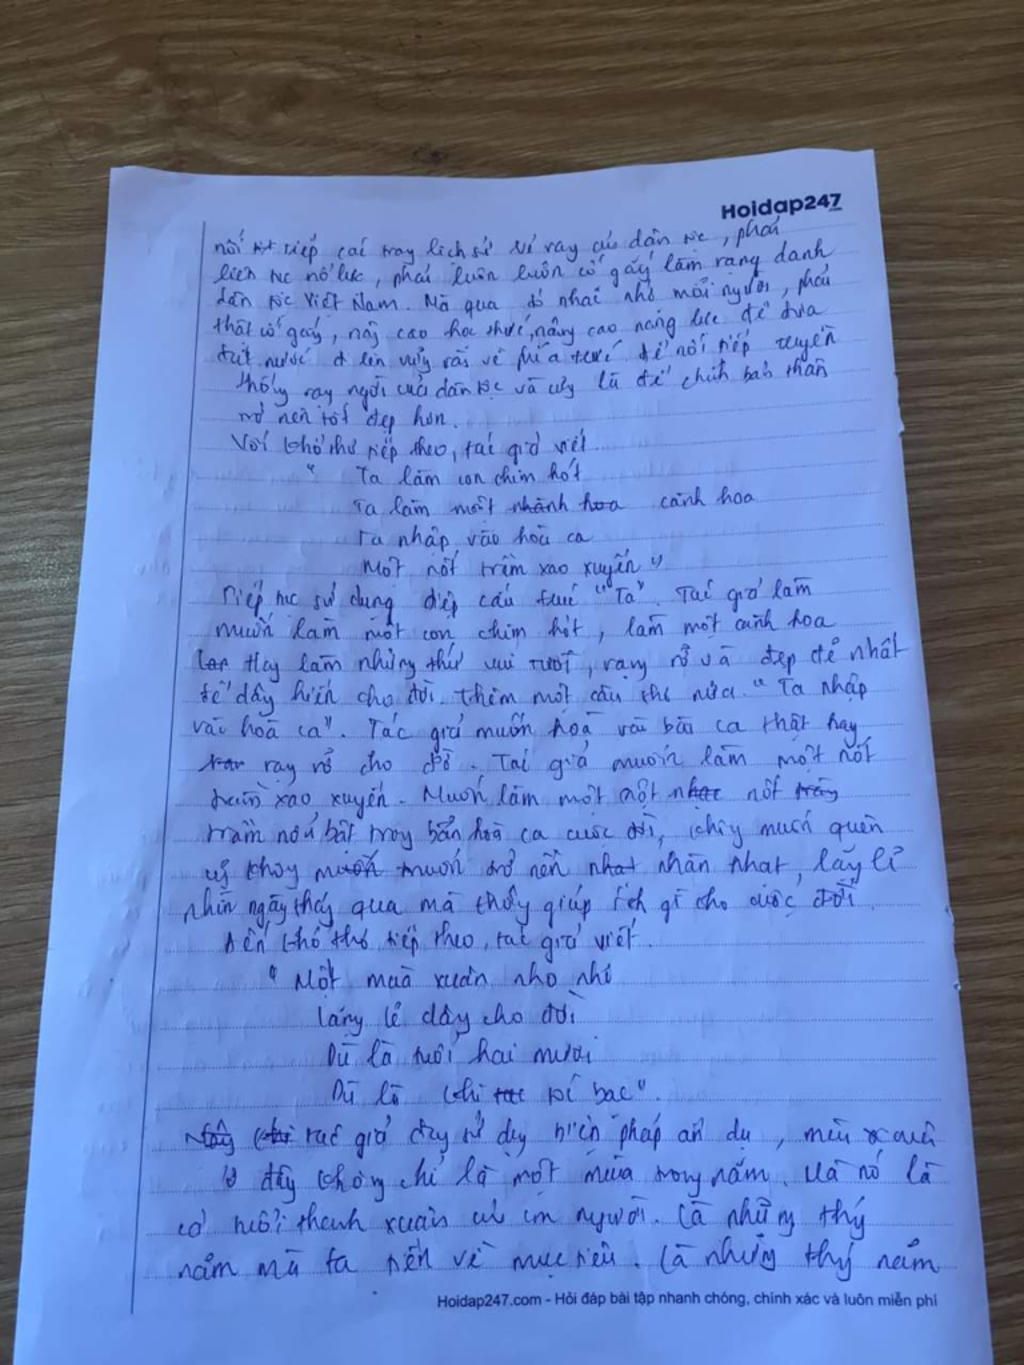 Hoidap247
nối tiếp các trang lịch sử vẻ vang của dân tộc, phải
liên tục nỗ lực, phải luôn luôn cố gắng làm rạng danh
dân tộc Việt Nam. Mà qua đó nhắc nhở mỗi người, phải
thật cố gắng, nâng cao học thức, nâng cao năng lực để đưa
đất nước đi lên vững vàng về phía trước để nối tiếp truyền
thống rạng ngời của dân tộc và cũng là để chính bản thân
trở nên tốt đẹp hơn.
Với khổ thơ tiếp theo, tác giả viết
" Ta làm con chim hót
Ta làm một nhành hoa cành hoa
Ta nhập vào hoà ca
Một nốt trầm xao xuyến "
Tiếp tục sử dụng điệp cấu trúc "Ta". Tác giả làm
muốn làm một con chim hót, làm một cành hoa
Hay làm những thứ vui tươi, rạng rỡ và đẹp đẽ nhất
để dâng hiến cho đời. Thêm một câu thơ nữa. " Ta nhập
vào hoà ca". Tác giả muốn hoà vào bài ca thật hay
rạng rỡ cho đời. Tác giả muốn làm một nốt
trầm xao xuyến. Muốn làm một nốt
trầm nổi bật trong bản hoà ca cuộc đời, không muốn
cũng không muốn muốn trở nên nhạt nhàn nhạt, lấy lí
nhìn ngày tháng qua mà không giúp ích gì cho cuộc đời.
Đến khổ thơ tiếp theo, tác giả viết.
" Một mùa xuân nho nhỏ
Lặng lẽ dâng cho đời
Dù là tuổi hai mươi
Dù là khi tóc bạc".
tác giả đang sử dụng biện pháp ẩn dụ, mùa xuân
ở đây không chỉ là một mùa trong năm. Mà nó là
cả tuổi thanh xuân của con người. Là những tháng
năm mà ta tiến về mục tiêu. Là những tháng năm
Hoidap247.com - Hỏi đáp bài tập nhanh chóng, chính xác và luôn miễn phí